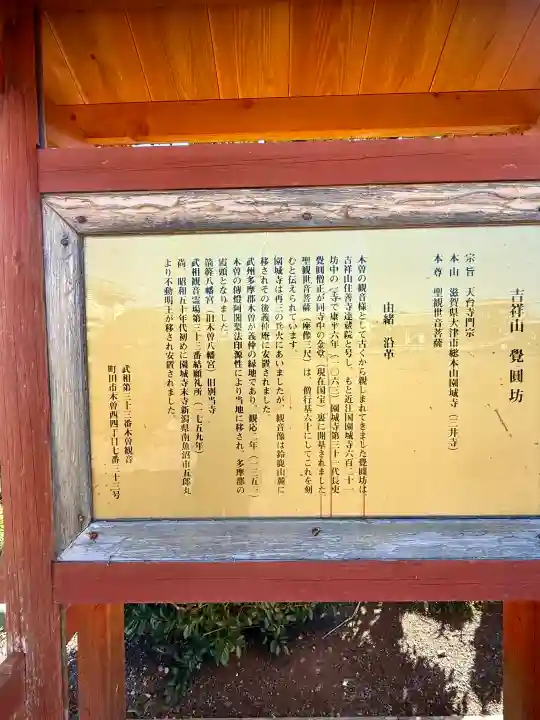 吉祥山 覺圓坊
宗旨 天台寺門宗
本山 滋賀県大津市総本山園城寺（三井寺）
本尊 聖観世音菩薩
由緒 沿革
木曽の観音様として古くから親しまれてきました覺圓坊は
吉祥山住善寺達蔵院と号し、もと近江国園城寺六百二十一
坊中の一寺で康平六年（一〇六三）園城寺第三十一代長吏
覺圓僧正が同寺中の金堂（現在国宝）裏に開基されました
聖観世音菩薩（座像三尺）は、僧行基六十にしてこれを刻
むと伝えられています
園城寺は再三の兵火にあいましたが、観音像は鈴鹿山麓に
移されその後義仲庵に安置されました
武州多摩郡木曽が義仲の縁地であり、観応二年（一三五一）
木曽の傳燈阿闍梨法印源性により当地に移され、多摩郡の
霞頭となりました。
箭簳八幡宮（旧木曽八幡宮）旧別当寺
武相観音霊場第三十三番結願礼所（一七五九年）
尚、昭和五十年代初めに園城寺末寺新潟県南魚沼市五郎丸
より不動明王が移され安置されました。
武相第三十三番木曽観音
町田市木曽西四丁目七番三十三号